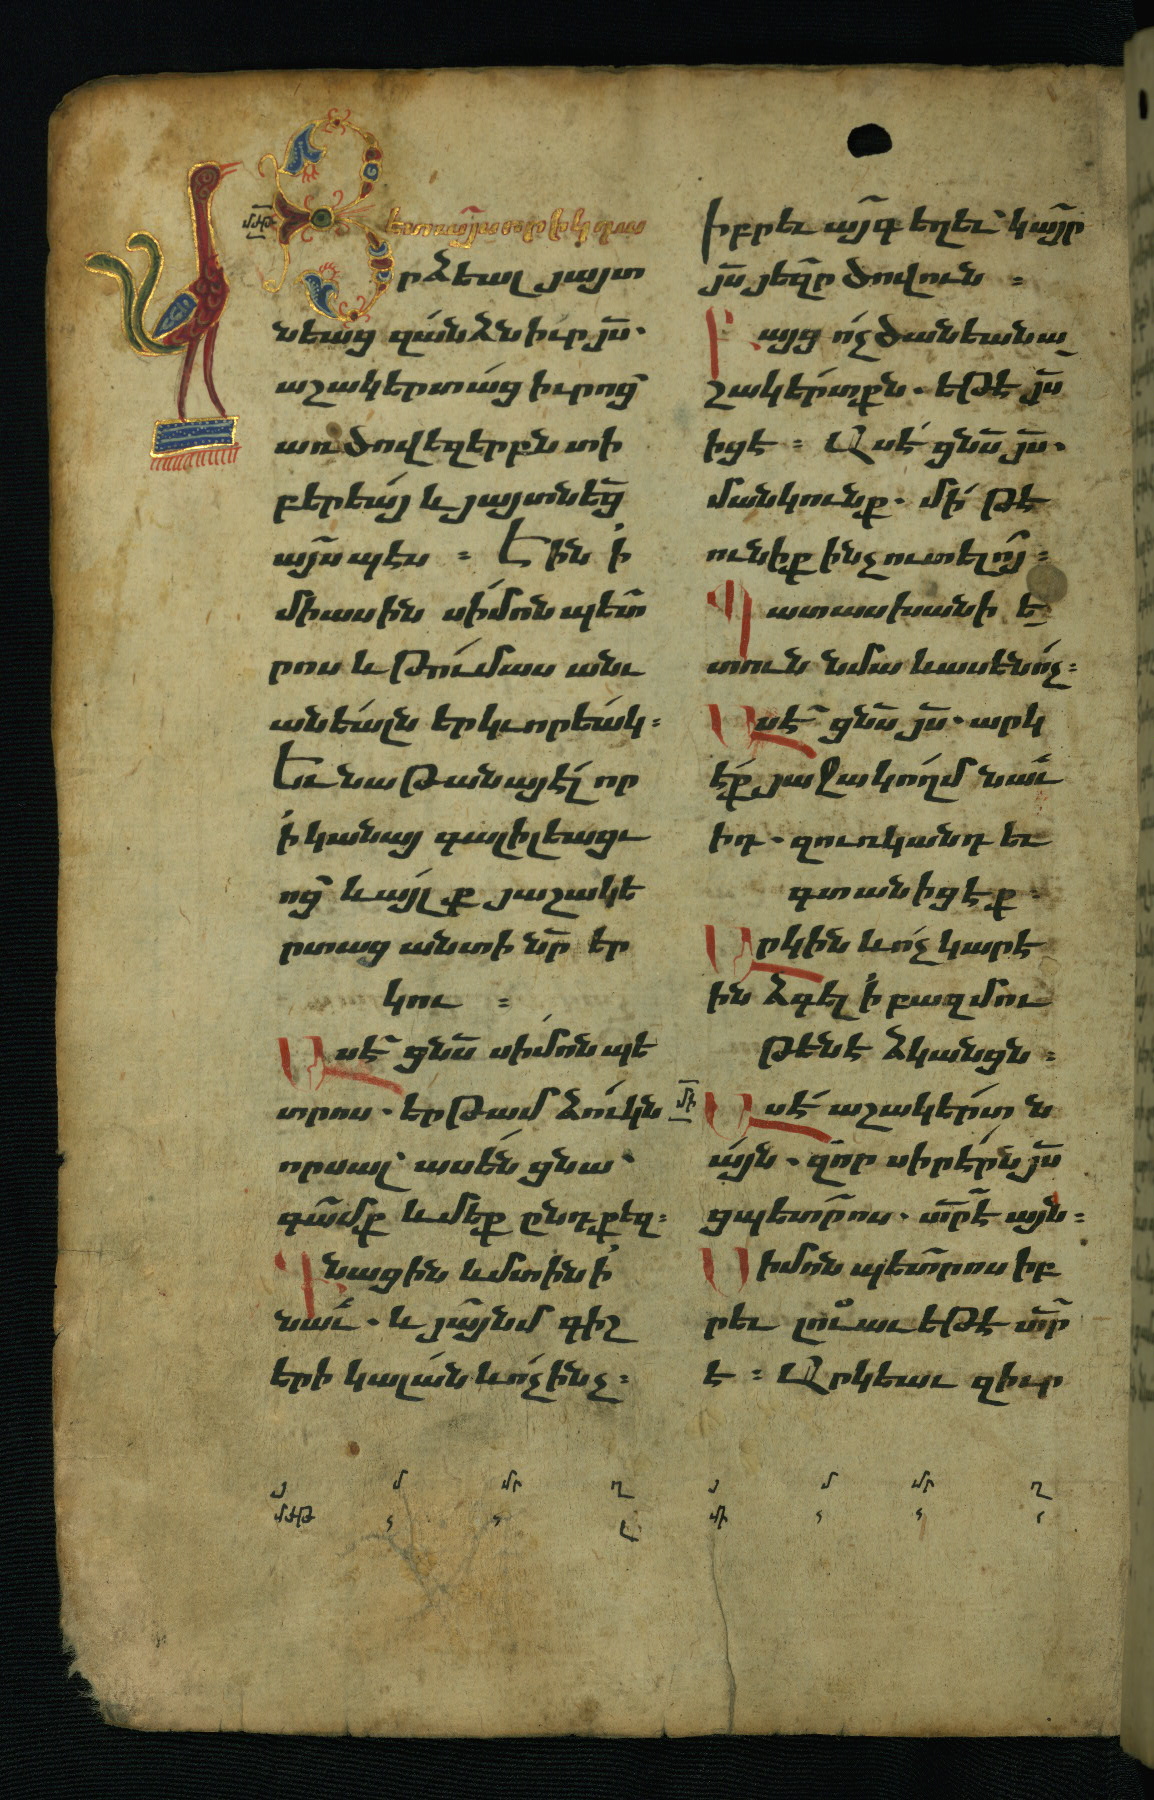 Յետ այսորիկ դա
րձեալ յայտ
նեաց զանձն իւր յս.
աշակերտաց իւրոց
առ ծովեզերբն տի
բերեայ և յայտնեց
այսպէս : Էին ի
միասին սիմոն պետ
րոս և Թումաս անւ
անեալն երկւորեակ :
Եւ նաԹանայէլ որ
ի կանայ գալիլեացւ
ոց և այլք յաշակե
րտաց անտի նր եր
կու :
Ասէ ցնս սիմոն պե
տրոս . երԹամ ձուկն
որսալ՝ ասեն ցնա՝
գամք և մեք ընդ քեզ :
Գնացին և մտին ի
նաւ . և յայնմ գիշ
երի կալան և ոչ ինչ :
Իբրեւ այգ եղեւ՝ կայր
յս յեզր ծովուն :
Բայց ոչ ծանեան ա
շակերտքն . եԹէ յս
իցէ : Ասէ ցնս յս .
մանկունք . մի Թէ
ունիք ինչ ուտելոյ :
Պատասխանի ե
տուն նմա և ասեն ոչ :
Ասէ ցնս յս . արկ
էք յաջակողմ նաւ
իդ . զուռկանդ եւ
գտանիցէք .
Արկին և ոչ կարէ
ին ձգել ի բազմու
Թենէ ձկանցն :
Ասէ աշակերտն
այն . զոր սիրէրն յս
ցպետրոս . տրէ այն :
Սիմոն պետրոս իբ
րեւ լուաւ եԹէ տր
է : Արկեաւ զիւր